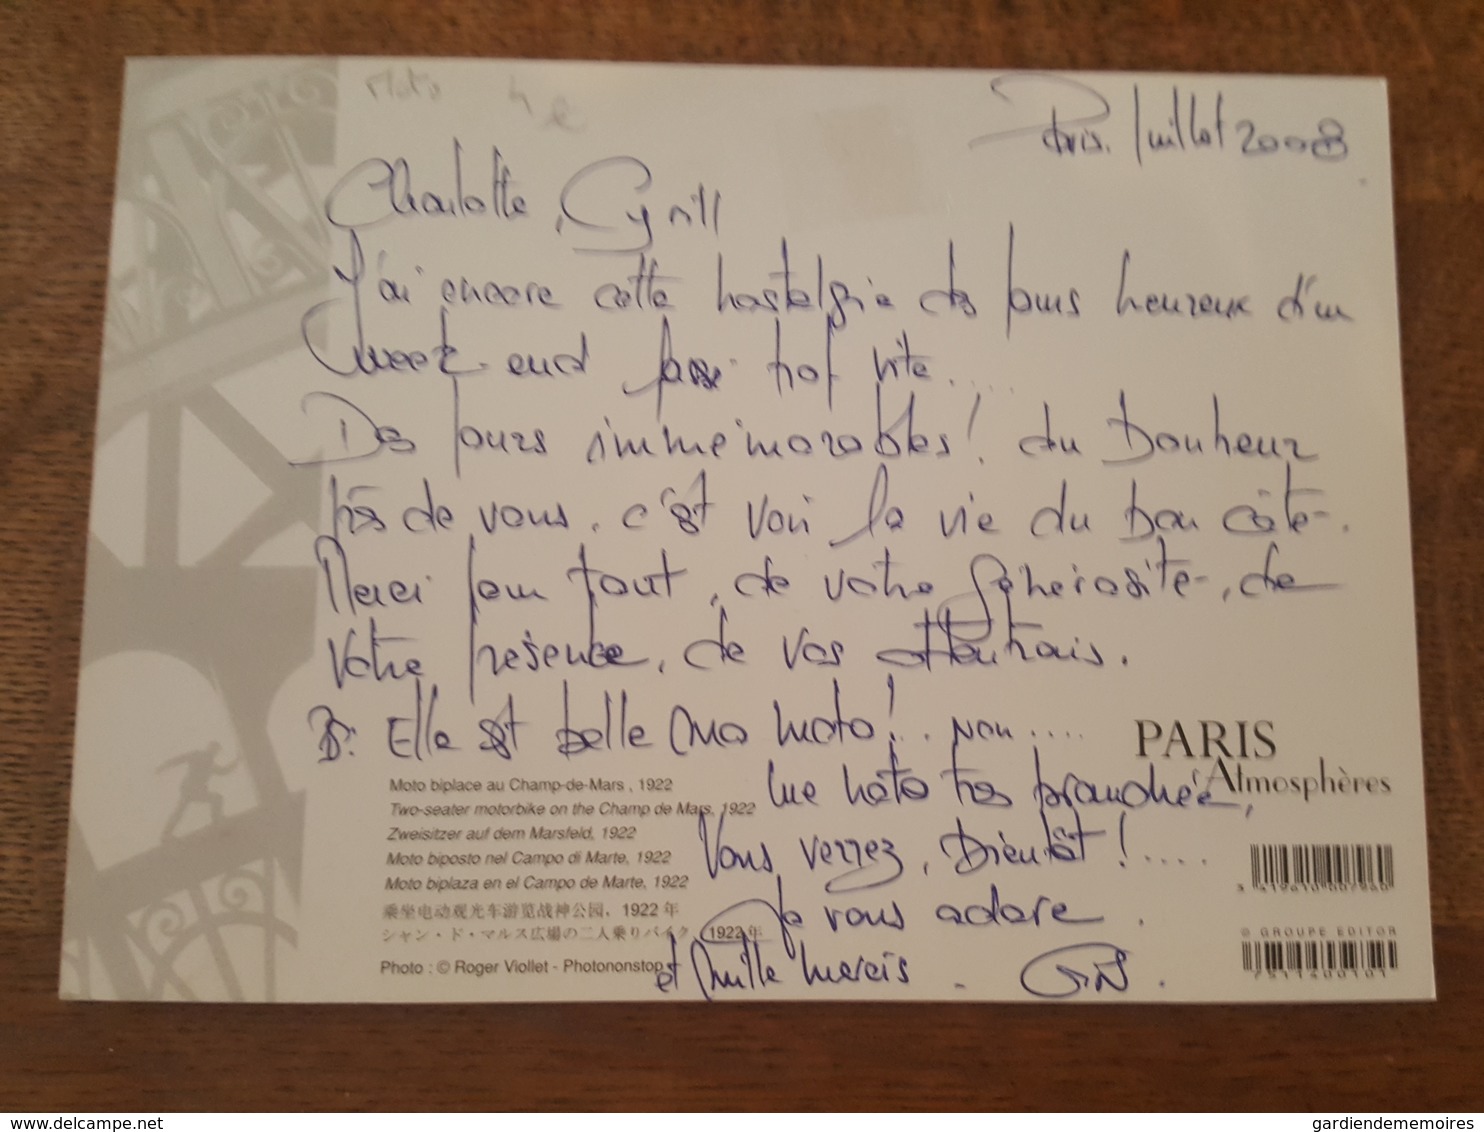 Moto
Paris. Juillet 2008
Charlotte, Cyrill
J'ai encore cette nostalgie des jours heureux d'un
week-end passé trop vite.....
Des jours immémorables! du bonheur
près de vous. c'est voir la vie du bon côté.
Merci pour tout, de votre générosité, de
votre présence, de vos attentions.
PS: Elle est belle ma moto!.. non....
une moto très branchée,
Vous verrez, Bientôt!....
Je vous adore.
et mille mercis.
PARIS
Atmosphères
Moto biplace au Champ-de-Mars, 1922
Two-seater motorbike on the Champ de Mars, 1922
Zweisitzer auf dem Marsfeld, 1922
Moto biposto nel Campo di Marte, 1922
Moto biplaza en el Campo de Marte, 1922
乘坐电动观光车游览战神公园，1922年
シャン・ド・マルス広場の二人乗りバイク、1922年
Photo : © Roger Viollet - Photononstop
3 419610 007960
© GROUPE EDITOR
7511400101
www.delcampe.net
gardiendememoires